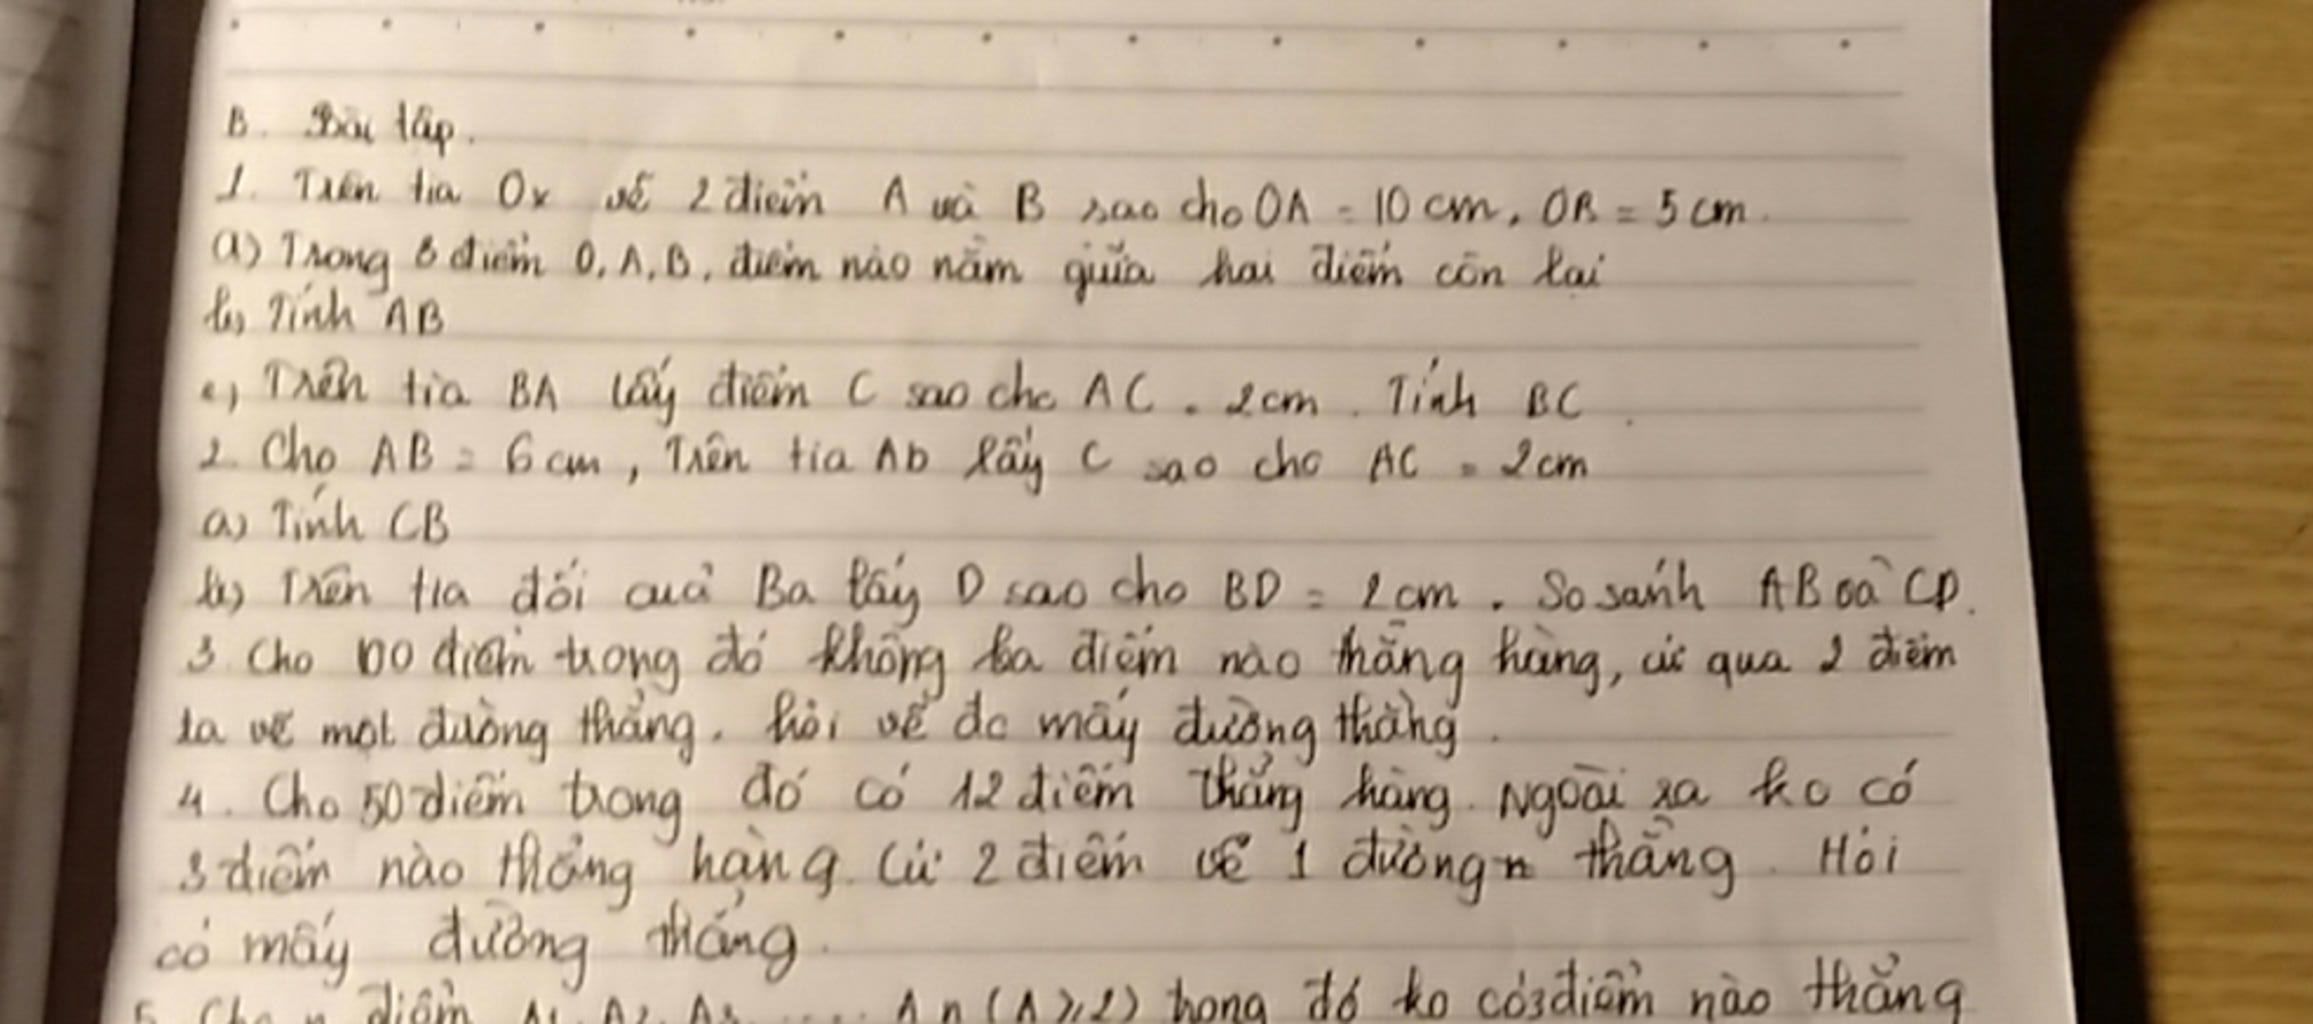 B. Bài tập.
1. Trên tia Ox vẽ 2 điểm A và B sao cho OA = 10 cm, OB = 5 cm.
a) Trong 3 điểm O, A, B, điểm nào nằm giữa hai điểm còn lại
b) Tính AB
c) Trên tia BA lấy điểm C sao cho AC = 2cm. Tính BC.
2. Cho AB = 6 cm, Trên tia Ab lấy C sao cho AC = 2cm
a) Tính CB
b) Trên tia đối của Ba lấy D sao cho BD = 2 cm. So sánh AB và CD.
3. Cho 100 điểm trong đó không ba điểm nào thẳng hàng, cứ qua 2 điểm
ta vẽ một đường thẳng. hỏi vẽ đc mấy đường thẳng.
4. Cho 50 điểm trong đó có 12 điểm thẳng hàng. Ngoài ra ko có
3 điểm nào thẳng hàng. Cứ 2 điểm vẽ 1 đường thẳng. Hỏi
có mấy đường thẳng.
5. Cho n điểm A1, A2, A3, ..... An (A ≥ 2) trong đó ko có 3 điểm nào thẳng